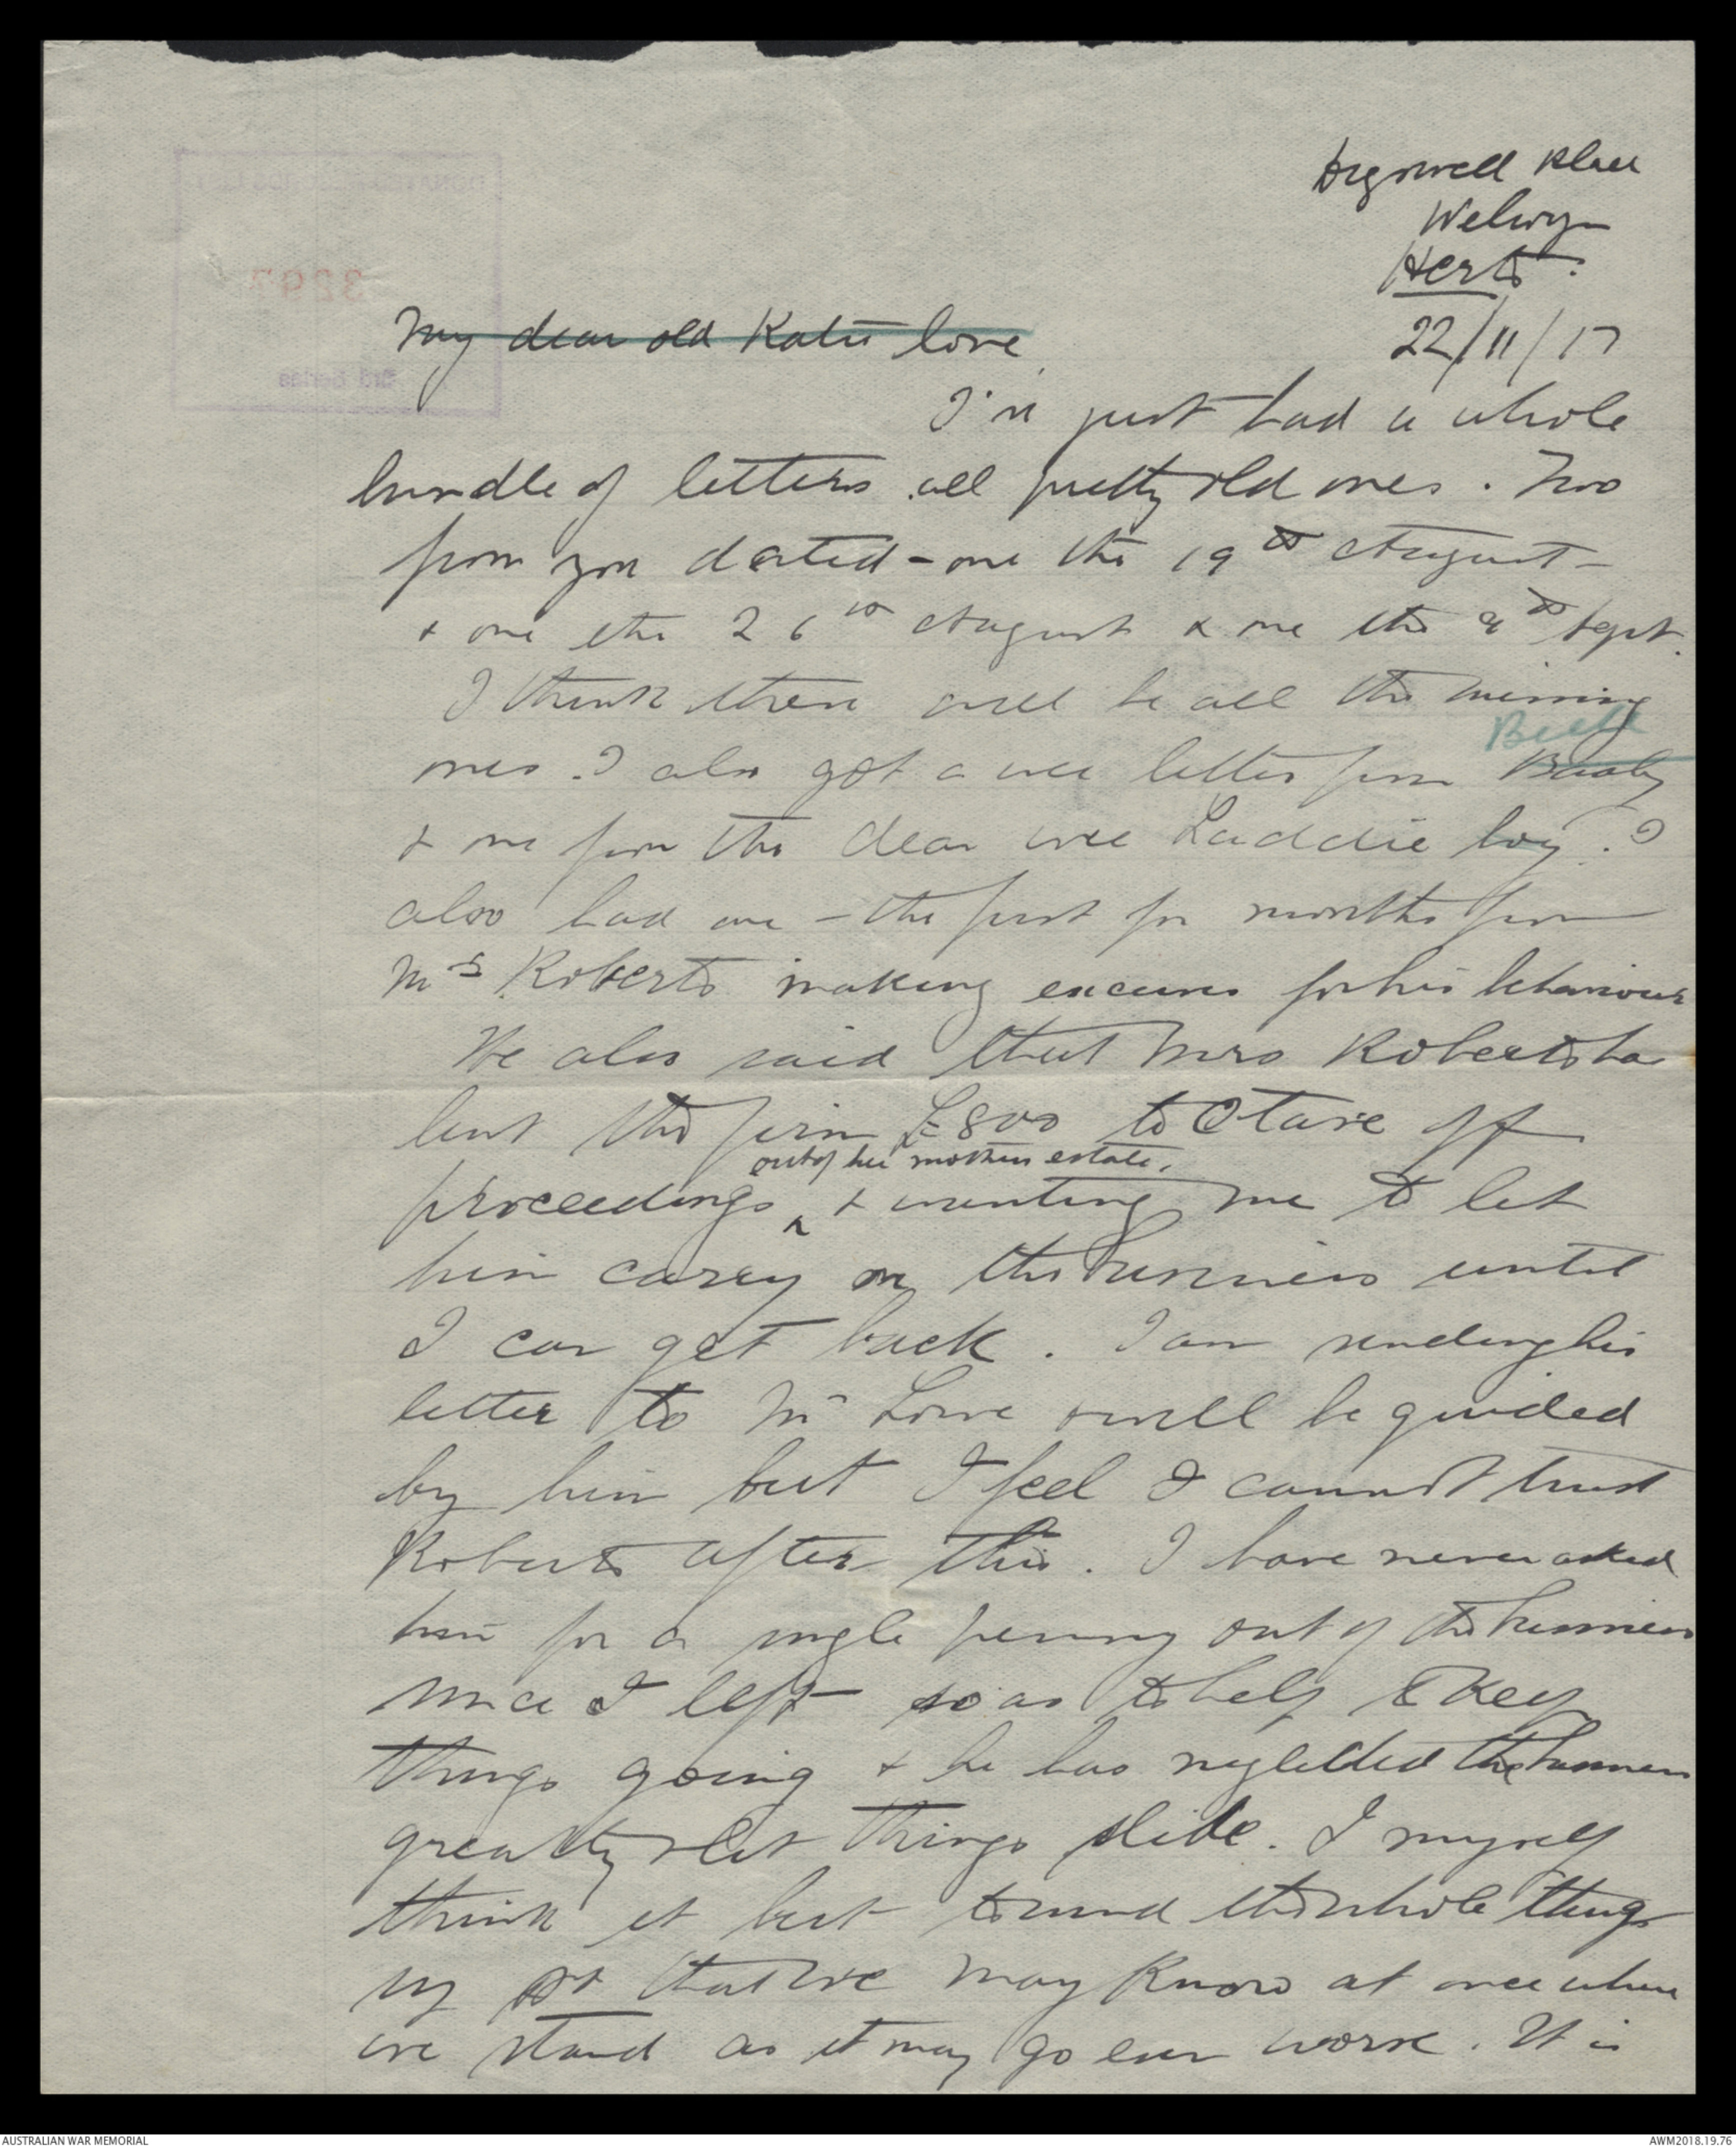 Digswell Place
Welwyn
Herts.
22/11/17
My dear old Katie love
I've just had a whole
bundle of letters all pretty old ones. Two
from you dated - one the 19th August -
& one the 26th August & one the 9th Sept.
I think these will be all the missing
Beill
ones. I also got a wee letter from Baaby
& one from the dear wee Laddie boy. I
also had one - the first for months from
Mr Roberts making excuses for his behaviour
He also said that Mrs Roberts ha
lent the firm £800 to stave off
out of her mothers estate,
proceedings ^ & wanting me to let
him carry on the business until
I can get back. I am sending his
letter to Mr Lowe & will be guided
by him but I feel I cannot trust
Roberts after this. I have never asked
him for a single penny out of the business
since I left so as to help & keep
things going & he has neglected the business
greatly & let things slide. I myself
think it best to wind the whole thing
up so that we may know at once where
we stand as it may go even worse. It is
3297
3rd Series
AUSTRALIAN WAR MEMORIAL
AWM2018.19.76